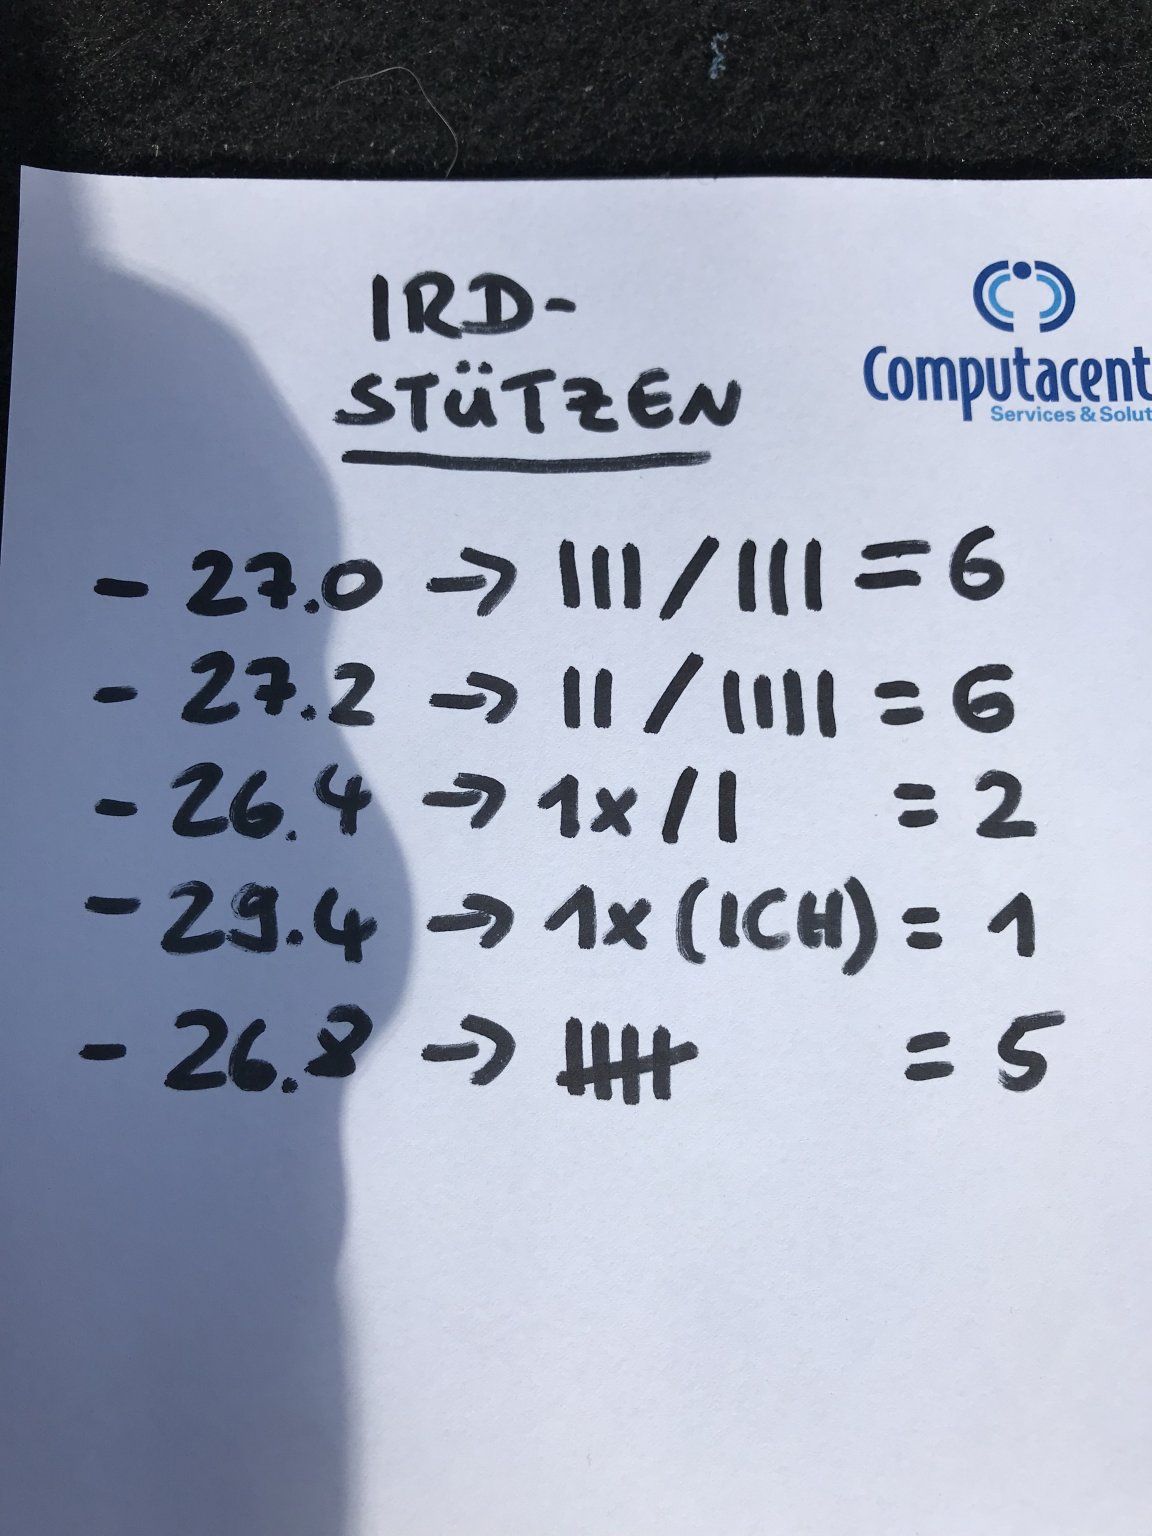 IRD-
STÜTZEN
Computacent
Services & Solut
- 27.0 → III / III = 6
- 27.2 → II / IIII = 6
- 26.4 → 1x / I = 2
- 29.4 → 1x (ICH) = 1
- 26.8 → IIII = 5